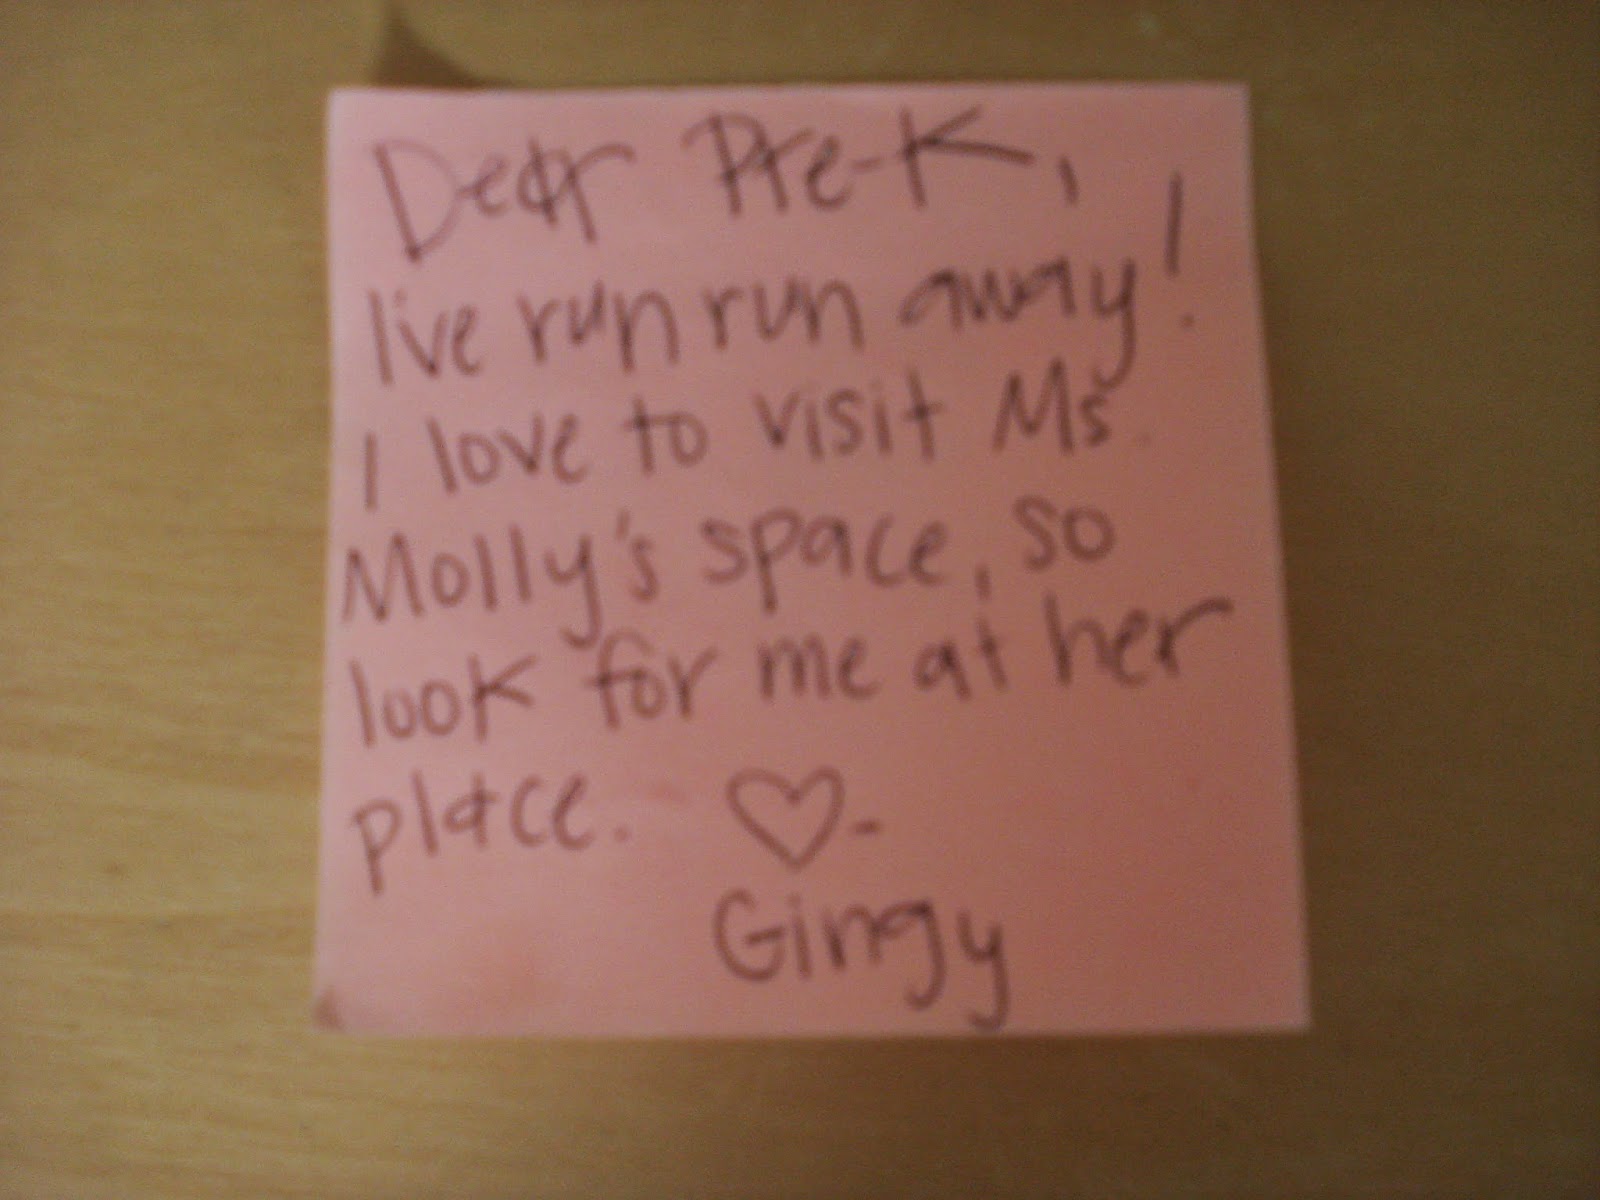 Dear Pre-K,
I've run run away!
I love to visit Ms.
Molly's space, so
look for me at her
place. ♡-
Gingy